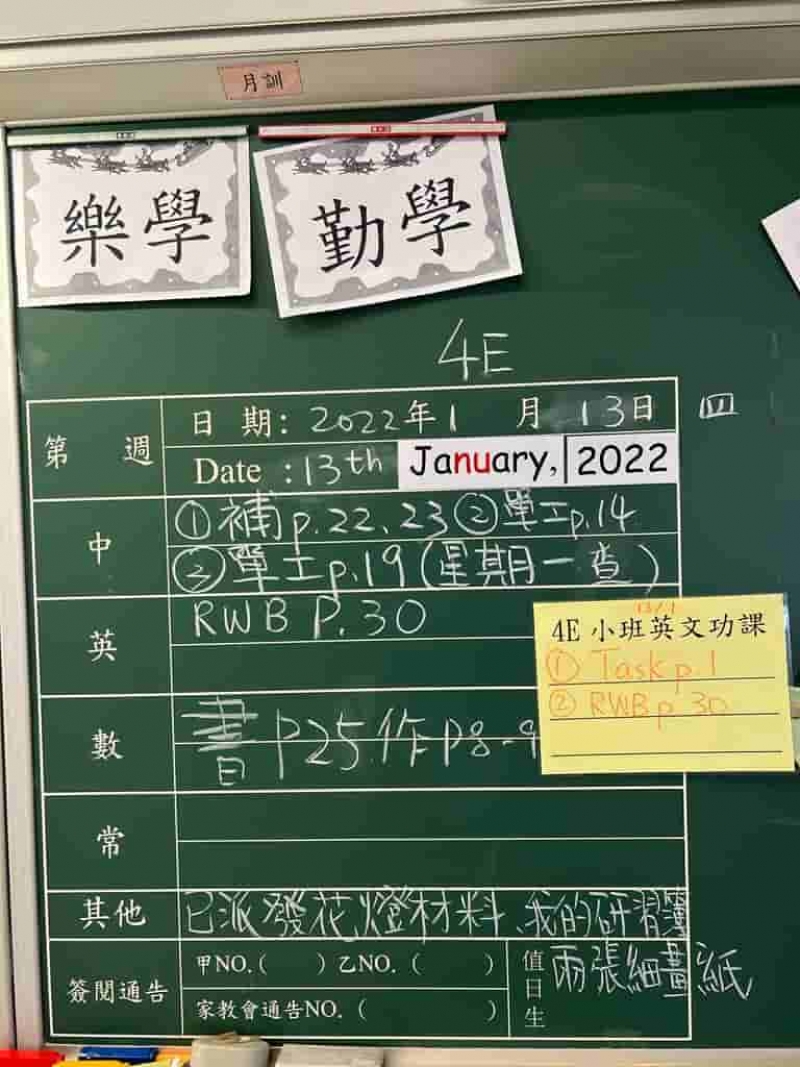 月訓
樂學
勤學
4E
第 週
日 期: 2022年1 月 13日 四
Date : 13th January, 2022
中
①補p.22、23 ②單工p.14
③單工p.19(星期一查)
英
RWB P.30
數
書P25 作P8-9
13/1
4E 小班英文功課
① Task p.1
② RWB p.30
常
其他
已派發花燈材料、我的研習簿
兩張細畫紙
簽閱通告
甲NO.( ) 乙NO.( )
家教會通告NO.( )
值日生